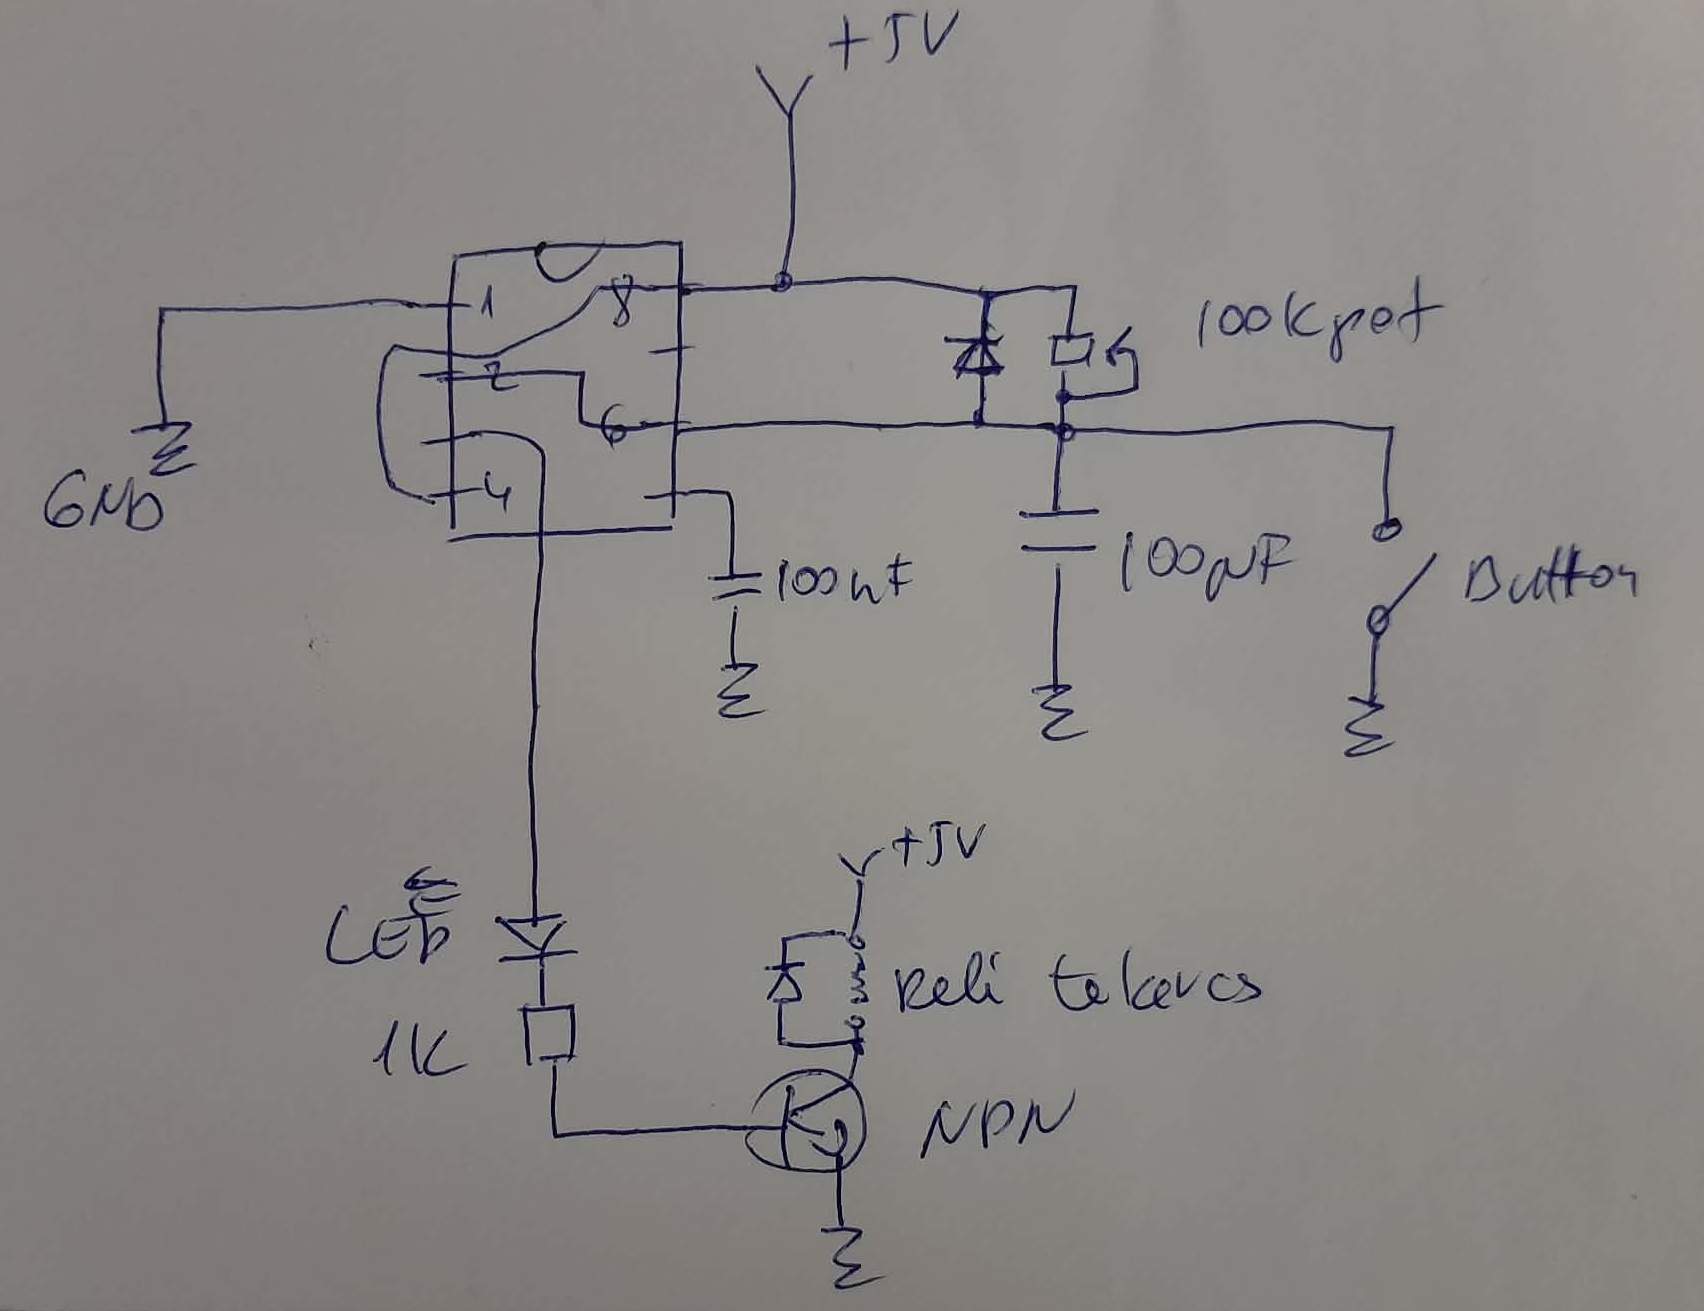 +5V
1
8
100K pot
2
6
GND
4
100nF
100µF
Button
+5V
LED
Reli tekercs
1K
NPN